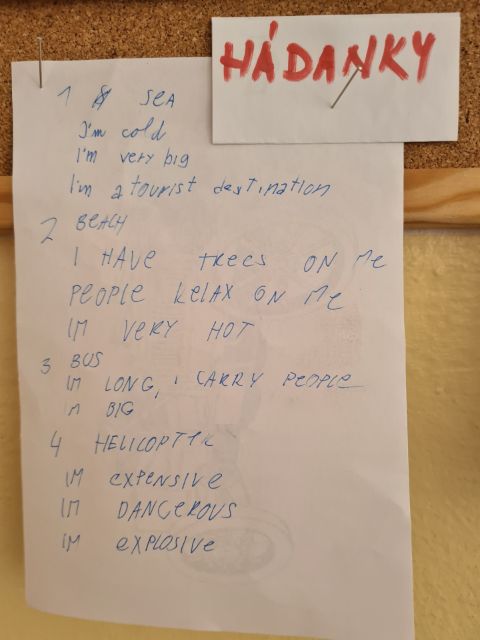 HÁDANKY
1 SEA
I'm cold
I'm very big
I'm a tourist destination
2 BEACH
I HAVE TREES ON ME
PEOPLE RELAX ON ME
IM VERY HOT
3 BUS
IM LONG, I CARRY PEOPLE
IM BIG
4 HELICOPTER
IM EXPENSIVE
IM DANGEROUS
IM EXPLOSIVE